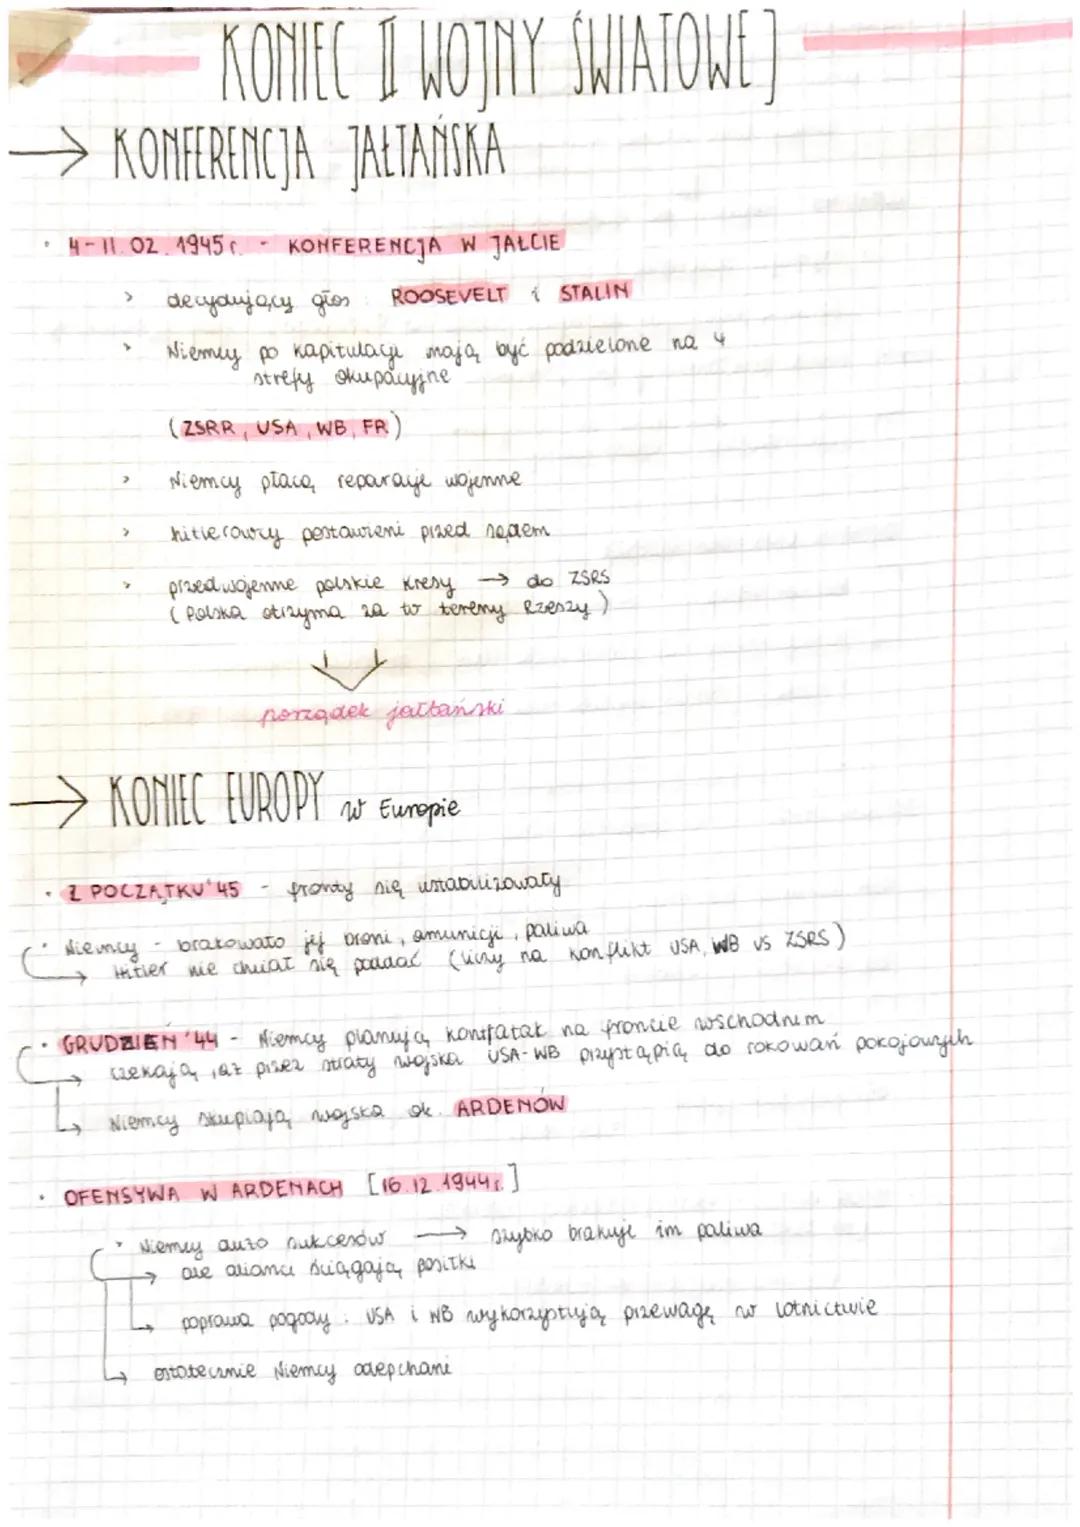 KONIEC II WOJNY ŚWIATOWEJ
→ KONFERENCJA JAŁTAŃSKA
• 4-11.02.1945r. - KONFERENCJA W JAŁCIE
> decydujący głos: ROOSEVELT i STALIN
> Niemcy po kapitulacji mają być podzielone na 4
strefy okupacyjne
(ZSRR, USA, WB, FR)
> Niemcy płacą reparacje wojenne
> hitlerowcy postawieni przed sądem
> przedwojenne polskie Kresy → do ZSRS
(Polska otrzyma za to tereny Rzeszy)
porządek jałtański
→ KONIEC EUROPY w Europie
• Z POCZĄTKU '45 - fronty się ustabilizowały
• Niemcy - brakowało jej broni, amunicji, paliwa
→ Hitler nie chciał się poddać (liczy na konflikt USA, WB vs ZSRS)
• GRUDZIEŃ '44 - Niemcy planują kontratak na froncie wschodnim
→ czekają, aż przez straty wojska USA-WB przystąpią do rokowań pokojowych
→ Niemcy skupiają wojska ok. ARDENÓW
• OFENSYWA W ARDENACH [16.12.1944r.]
• Niemcy dużo sukcesów → szybko brakuje im paliwa
→ ale alianci ściągają posiłki
→ poprawa pogody: USA i WB wykorzystują przewagę w lotnictwie
→ ostatecznie Niemcy odepchani